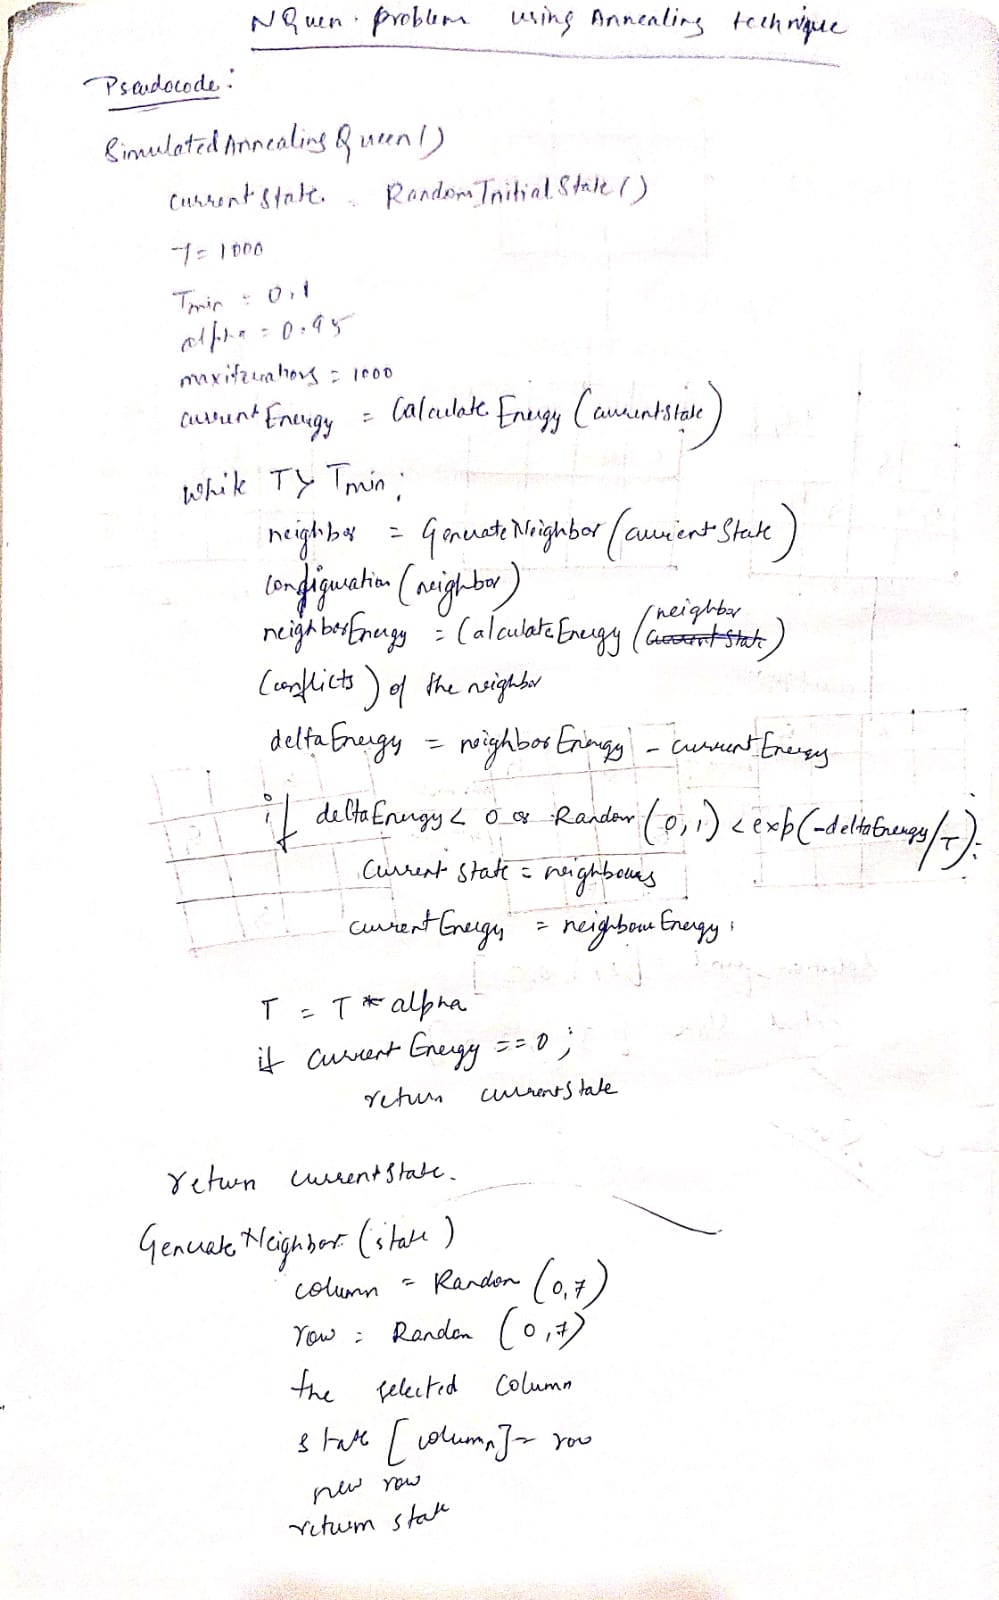 NQuen. problem using Annealing technique
Pseudocode:
SimulatedAnnealingQueen()
currentState. = RandomInitialState()
T = 1000
Tmin = 0.1
alpha = 0.95
maxiterations = 1000
currentEnergy = CalculateEnergy (currentstate)
while T > Tmin:
neighbor = GenerateNeighbor (currentState)
configuration (neighbor)
neighborEnergy = CalculateEnergy (current State neighbor)
(conflicts) of the neighbor
deltaEnergy = neighborEnergy - currentEnergy
if deltaEnergy < 0 or Random (0,1) < exp(-deltaEnergy/T):
Current state = neighbours
currentEnergy = neighbourEnergy
T = T * alpha
if currentEnergy == 0;
return currentstate
return currentState.
GenerateNeighbor (state)
column = Random (0,7)
row = Random (0,7)
the selected column
state [column] = row
new row
return state